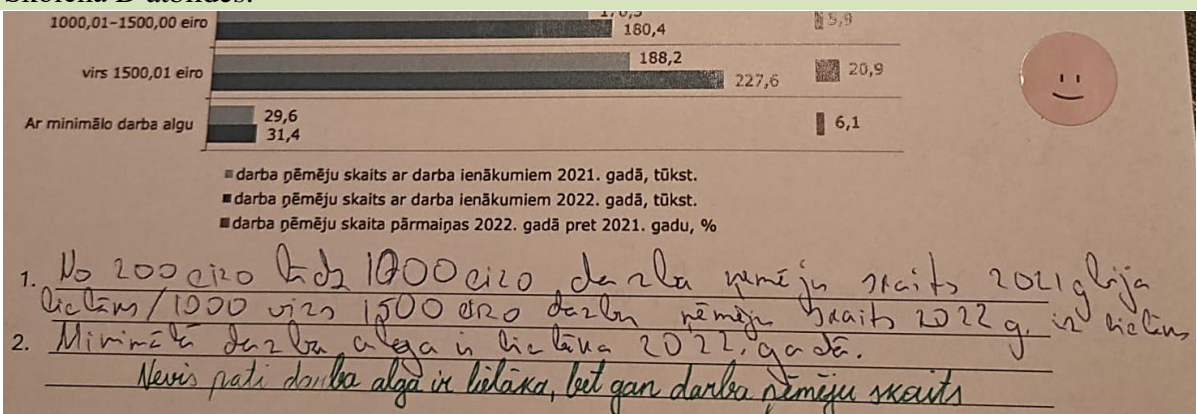 Skolēna D atbildes.
1000,01–1500,00 eiro
180,4
5,9
virs 1500,01 eiro
188,2
227,6
20,9
Ar minimālo darba algu
29,6
31,4
6,1
darba ņēmēju skaits ar darba ienākumiem 2021. gadā, tūkst.
darba ņēmēju skaits ar darba ienākumiem 2022. gadā, tūkst.
darba ņēmēju skaita pārmaiņas 2022. gadā pret 2021. gadu, %
1. No 200 eiro līdz 1000 eiro darba ņemēju skaits 2021 g bija
lielāks/1000 virs 1500 eiro darba ņēmēju skaits 2022 g. ir lielāks
2. Minimālā darba alga ir lielāka 2022. gadā.
Nevis pati darba alga ir lielāka, bet gan darba ņēmēju skaits